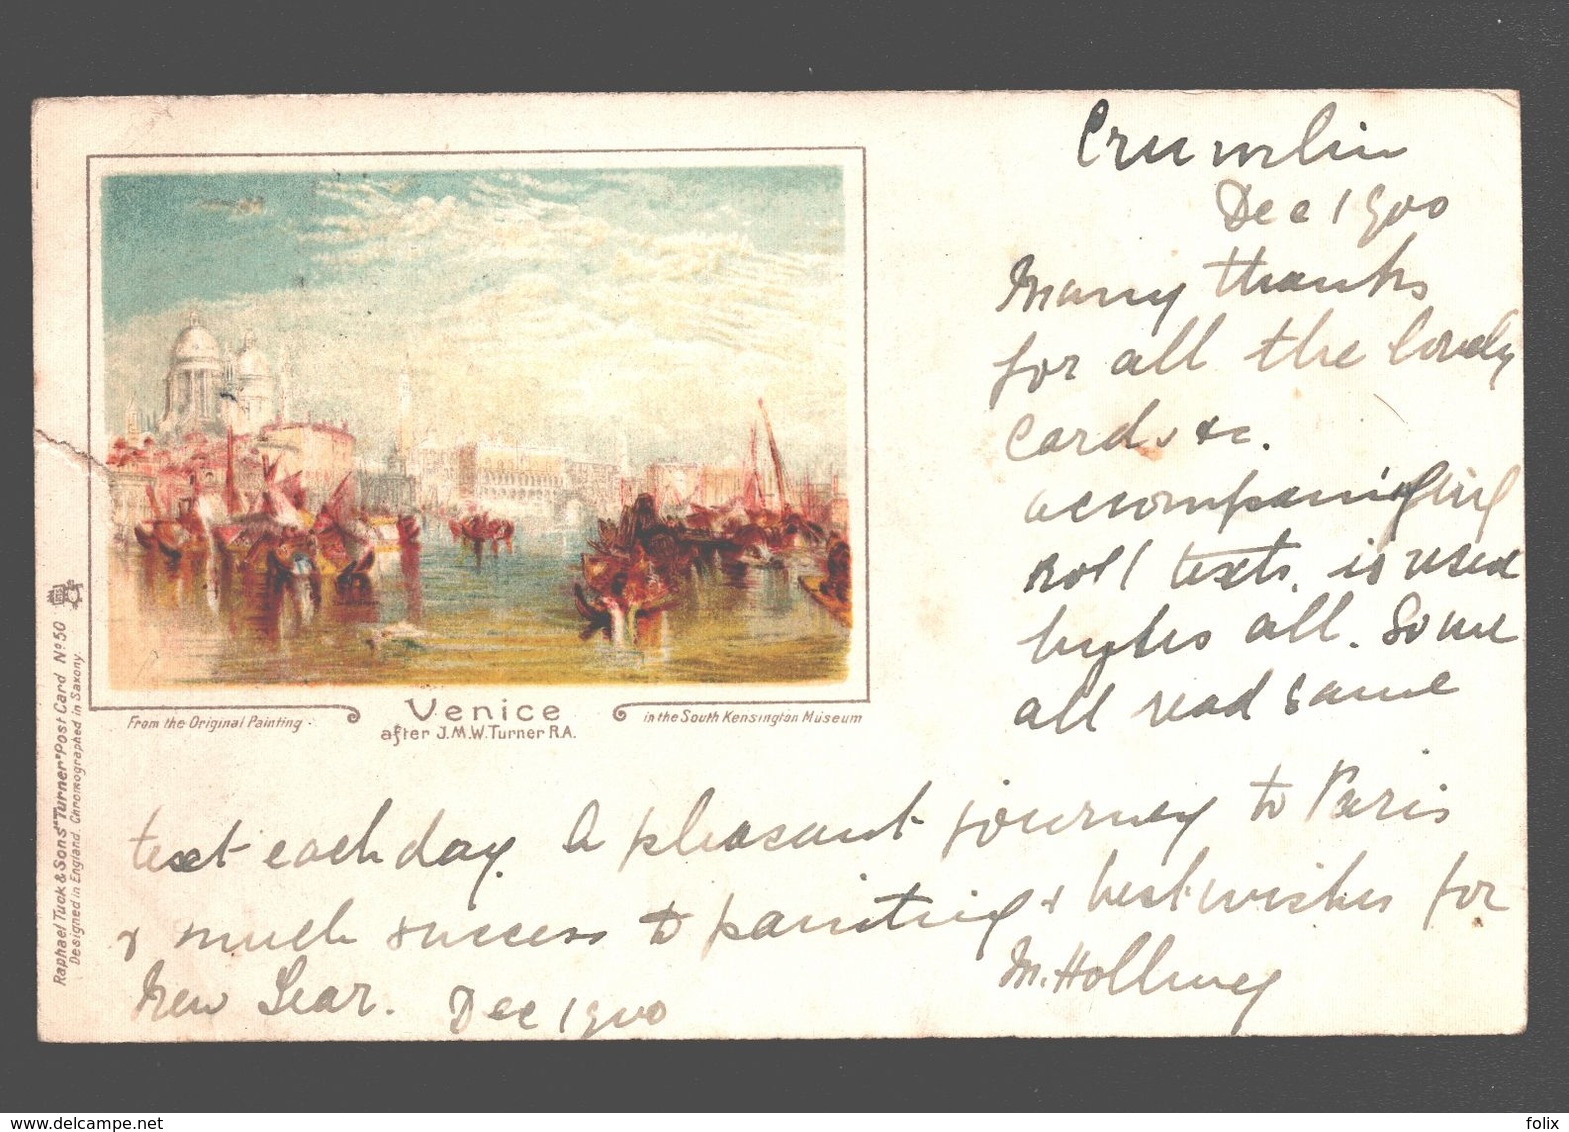 Crumlin
Dec 1900
Many thanks
for all the lovely
cards &c.
accompanying
Roll texts, is used
by us all. So we
all read same
text each day. A pleasant journey to Paris
& much success to painting & best wishes for
New Year. Dec 1900
M. Hollwey
From the Original Painting
Venice
after J.M.W. Turner R.A.
in the South Kensington Museum
Raphael Tuck & Sons' "Turner" Post Card No 50
Designed in England. Chromographed in Saxony.
delcampe.net
folix